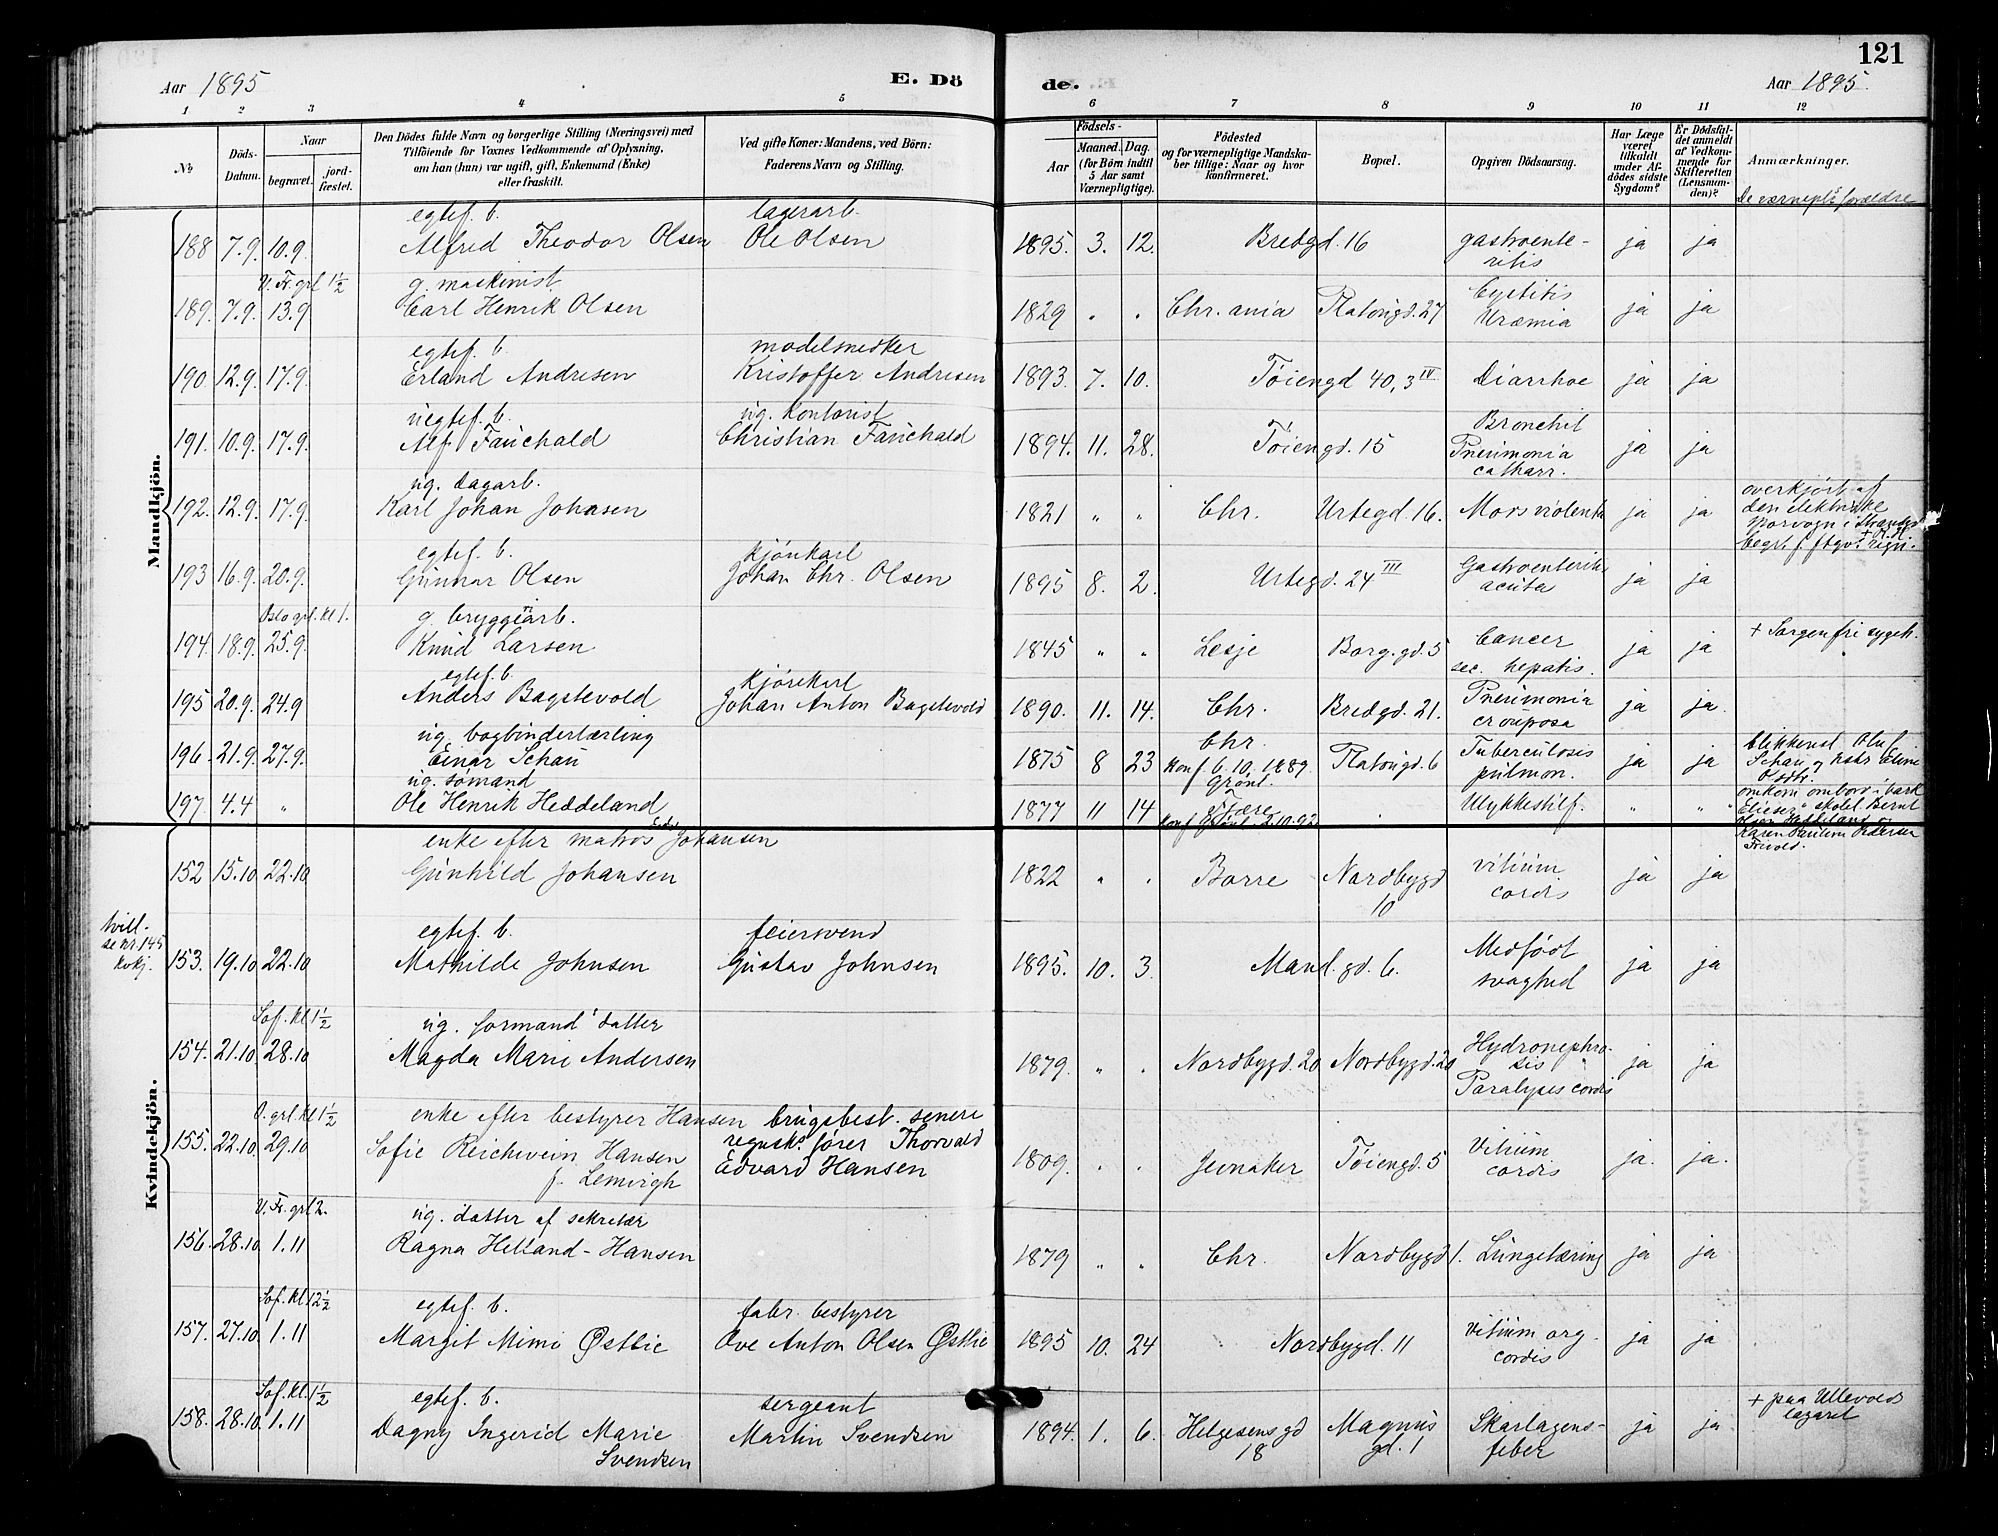 121
Aar 1895 E. Dö de. Aar 1895.
1 2 3 4 5 6 7 8 9 10 11 12
№
Döds-Datum.
Naar begravet. jordfæstet.
Den Dödes fulde Navn og borgerlige Stilling (Næringsvei) med Tilföiende for Voxnes Vedkommende af Oplysning, om han (hun) var ugift, gift, Enkemand (Enke) eller fraskilt.
Ved gifte Koner: Mandens, ved Börn: Faderens Navn og Stilling.
Födsels-
Aar Maaned. Dag. (for Börn indtil 5 Aar samt Værnepligtige).
Födested og for værnepligtige Mandskaber tillige: Naar og hvor konfirmeret.
Bopæl.
Opgiven Dödsaarsag.
Har Læge været tilkaldt under Afdödes sidste Sygdom?
Er Dödsfaldet anmeldt af Vedkommende for Skifteretten (Lensmanden)?
Anmærkninger.
De værnepl.s forældre
Mandkjön.
egtef. b. lagerarb.
188 7.9. 10.9. Alfred Theodor Olsen Ole Olsen 1895. 3. 12. Bredgd. 16 gastroenteritis ja ja
V. Fr. grl 1½ g. maskinist
189. 7.9. 13.9 Carl Henrik Olsen 1829 " " Chr.ania Platougd. 27 Cystitis Uræmia ja ja
egtef. b. modelsnedker
190. 12.9. 17.9. Erland Andresen Kristoffer Andresen 1893. 7. 10. Töiengd 40, 3 IV Diarrhoe ja ja
uegtef. b. ug. kontorist
191. 10.9. 17.9. Alf Fauchald Christian Fauchald 1894. 11. 28. Töiengd. 15 Bronchit Pneumonia catharr. ja ja
ug. dagarb.
192. 12.9. 17.9. Karl Johan Johnsen 1821 " " Chr. Urtegd. 16. Mors violenta ja ja overkjørt af den elektriske sporvogn i
egtef. b. kjörekarl
193 16.9. 20.9. Gunnar Olsen Johan Chr. Olsen 1895 8. 2. Urtegd. 24 III Gastroenterit acuta ja ja
Oslo grl. kl 1. g. bryggiarb.
194. 18.9. 25.9. Knud Larsen 1845 " " Lesje Borg. gd. 5 Cancer sec. hepatis. ja ja + Sorgenfri sygeh.
egtef. b. kjörekarl
195 20.9. 24.9 Anders Bagstevold Johan Anton Bagstevold 1890. 11. 14. Chr. Bredgd. 21. Pneumonia crouposa ja ja.
ug. bogbinderlærling
196. 21.9. 27.9. Einar Schau 1875 8 23 Chr. Konf. 6.10.1889. Grönl. Platougd. 6 Tuberculosis pulmon. ja ja blikkensl. Oluf Schau og hstr Eline Olsdtr.
ug. sömand
197. 4.4 " Ole Henrik Heddeland 1877 11 14 Fjære konf. Grönl. 2.10.92 Ulykkestilf. " " omkom ombord i bark "Elieser" skolel. Bernt Olsen Heddeland og Karen Pauline Pedersen Frivold.
Kvindekjön.
enke efter matros Johansen
152 15.10 22.10 Gunhild Johansen 1822 " " Borre Nordbygd 10 Vitium cordis ja ja
Tvill. se nr. 145 kvkj.
egtef. b. feiersvend
153. 19.10 22.10 Mathilde Johnsen Gustav Johnsen 1895. 10. 3. Mand. gd. 6. Medfödt svaghed ja ja
Sof. kl 1½ ug. formand datter
154. 21.10 28.10 Magda Marie Andersen 1879. " " Nordbygd. 20 Nordbygd. 20 Hydronephrosis Paralysis cordis ja ja
O. grl. kl 1½ enke efter bestyrer Hansen brugsbest. senere
155. 22.10 29.10 Sofie Reichwein Hansen f. Lemvigh regnsk.förer Thorvald Edvard Hansen 1809. " " Jevnaker Töiengd. 5 Vitium cordis ja. ja.
V. Fr. grl 2. ug. datter af sekretær
156. 28.10 1.11 Ragna Helland-Hansen 1879 " " Chr. Nordbygd 1. Lungetæring ja ja
Sof. kl 12½ egtef. b. fabr. bestyrer
157. 27.10. 1.11 Margit Mimi Østbie Ove Anton Olsen Østbie 1895 10. 24 Nordbygd. 11 Vitium org. cordis ja ja
Sof. kl. 1½ egtef. b. sergeant
158. 28.10. 1.11 Dagny Ingerid Marie Svendsen Martin Svendsen 1894. 1. 6. Helgesensgd 18 Magnus gd. 1 Skarlagensfeber ja ja + paa Ullevolds lazaret